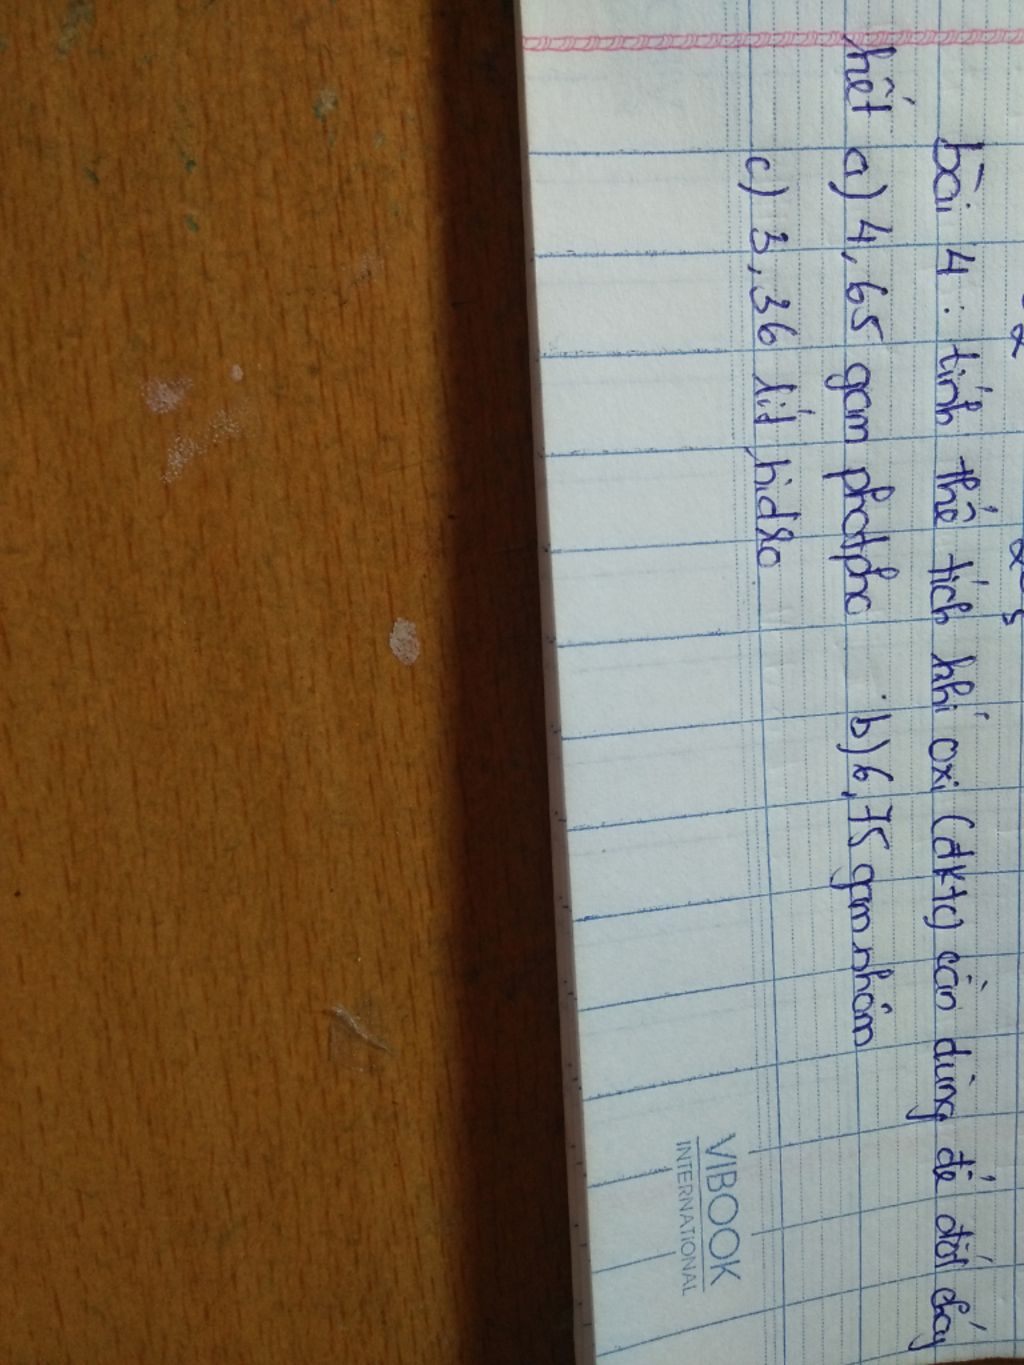 bài 4 : tính thể tích khí oxi (đktc) cần dùng để đốt cháy
hết a) 4,65 gam photpho b) 6,75 gam nhôm
c) 3,36 lít hidro
VIBOOK
INTERNATIONAL